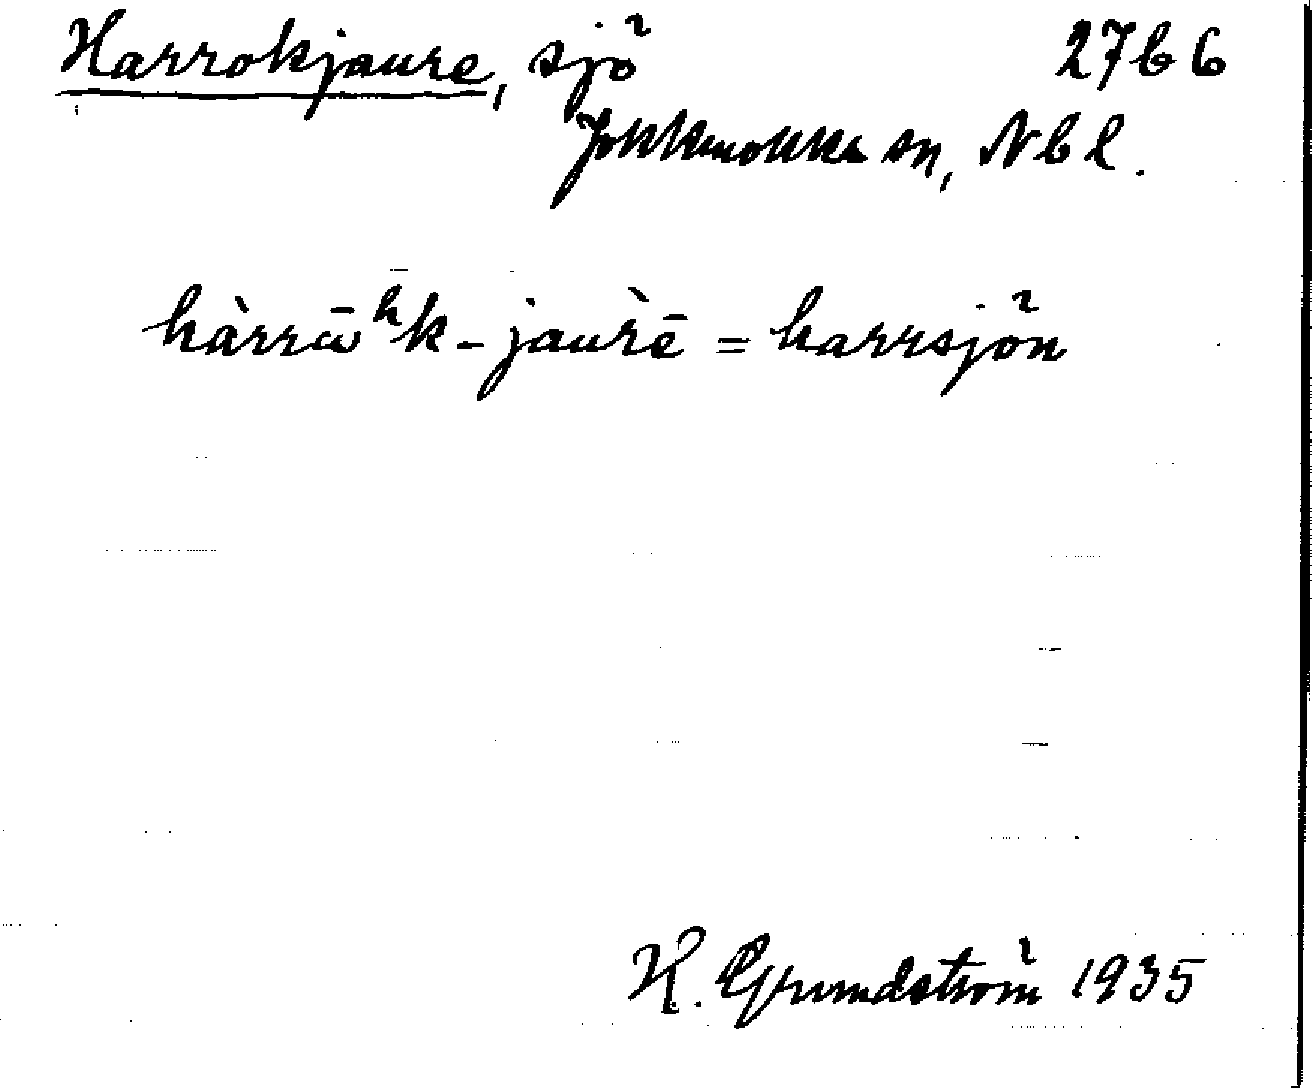 Harrokjaure, sjö 27b6
Jokkmokks sn, Nbl.
hàrrω̄ʰk-jaùrē = harrsjön
H. Grundström 1935